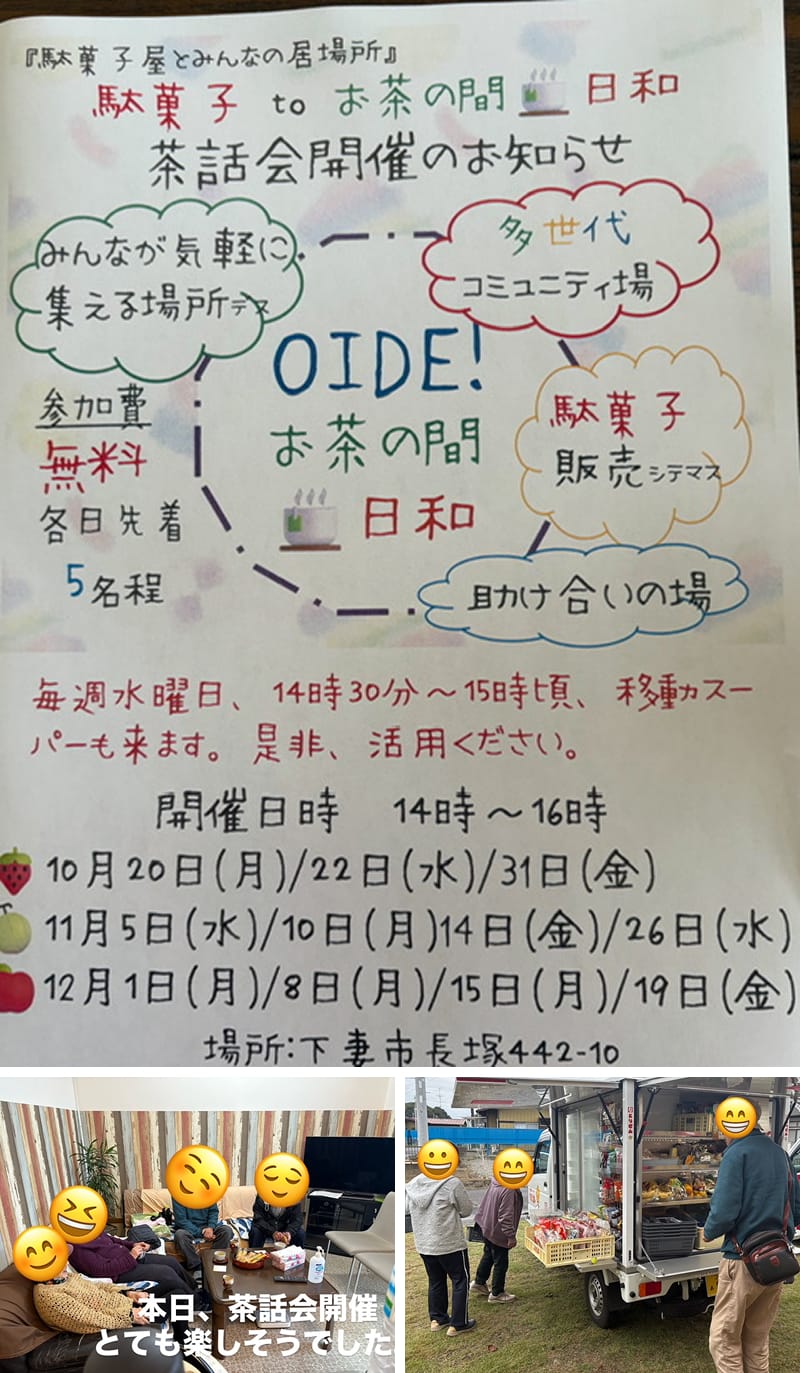 『駄菓子屋とみんなの居場所』
駄菓子 to お茶の間 日和
茶話会開催のお知らせ
みんなが気軽に
集える場所デス
多世代
コミュニティ場
OIDE!
お茶の間
日和
参加費
無料
各日先着
5名程
駄菓子
販売シテマス
助け合いの場
毎週水曜日、14時30分～15時頃、移動カスー
パーも来ます。是非、活用ください。
開催日時 14時～16時
10月20日(月)/22日(水)/31日(金)
11月5日(水)/10日(月)14日(金)/26日(水)
12月1日(月)/8日(月)/15日(月)/19日(金)
場所:下妻市長塚442-10
本日、茶話会開催
とても楽しそうでした